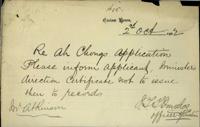 Custom House,
2nd Oct
Re Ah Chong's Application
Please inform applicant, Minister's
direction Certificate not to issue
then to records
Mr Atkinson